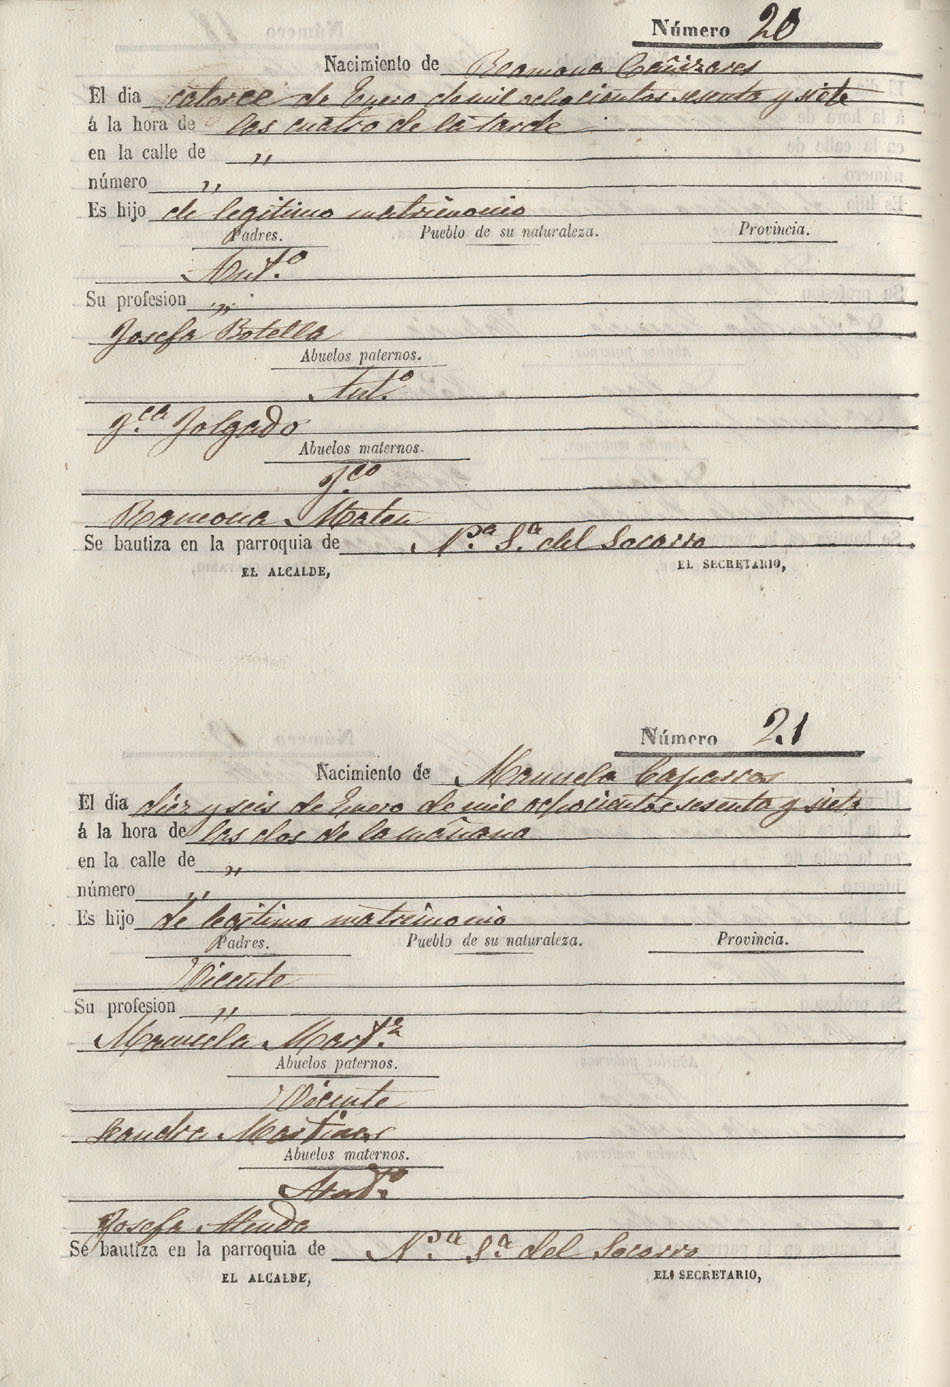 Número 20
Nacimiento de Ramona Cañizares
El dia catorce de Enero de mil ochocientos sesenta y siete
á la hora de las cuatro de la tarde
en la calle de "
número "
Es hijo de legitimo matrimonio
Padres. Pueblo de su naturaleza. Provincia.
Ant.º
Su profesion "
Josefa Botella
Abuelos paternos.
Ant.º
F.ca Folgado
Abuelos maternos.
F.co
Ramona Mateu
Se bautiza en la parroquia de N.ª S.ª del Socorro
EL ALCALDE, EL SECRETARIO,
Número 21
Nacimiento de Manuela Caparros
El dia diez y seis de Enero de mil ochocientos sesenta y siete
á la hora de las dos de la mañana
en la calle de "
número "
Es hijo de legitimo matrimonio
Padres. Pueblo de su naturaleza. Provincia.
Vicente
Su profesion "
Manuela Mart.z
Abuelos paternos.
Vicente
Leandra Martinez
Abuelos maternos.
Josefa
Se bautiza en la parroquia de N.ª S.ª del Socorro
EL ALCALDE, EL SECRETARIO,